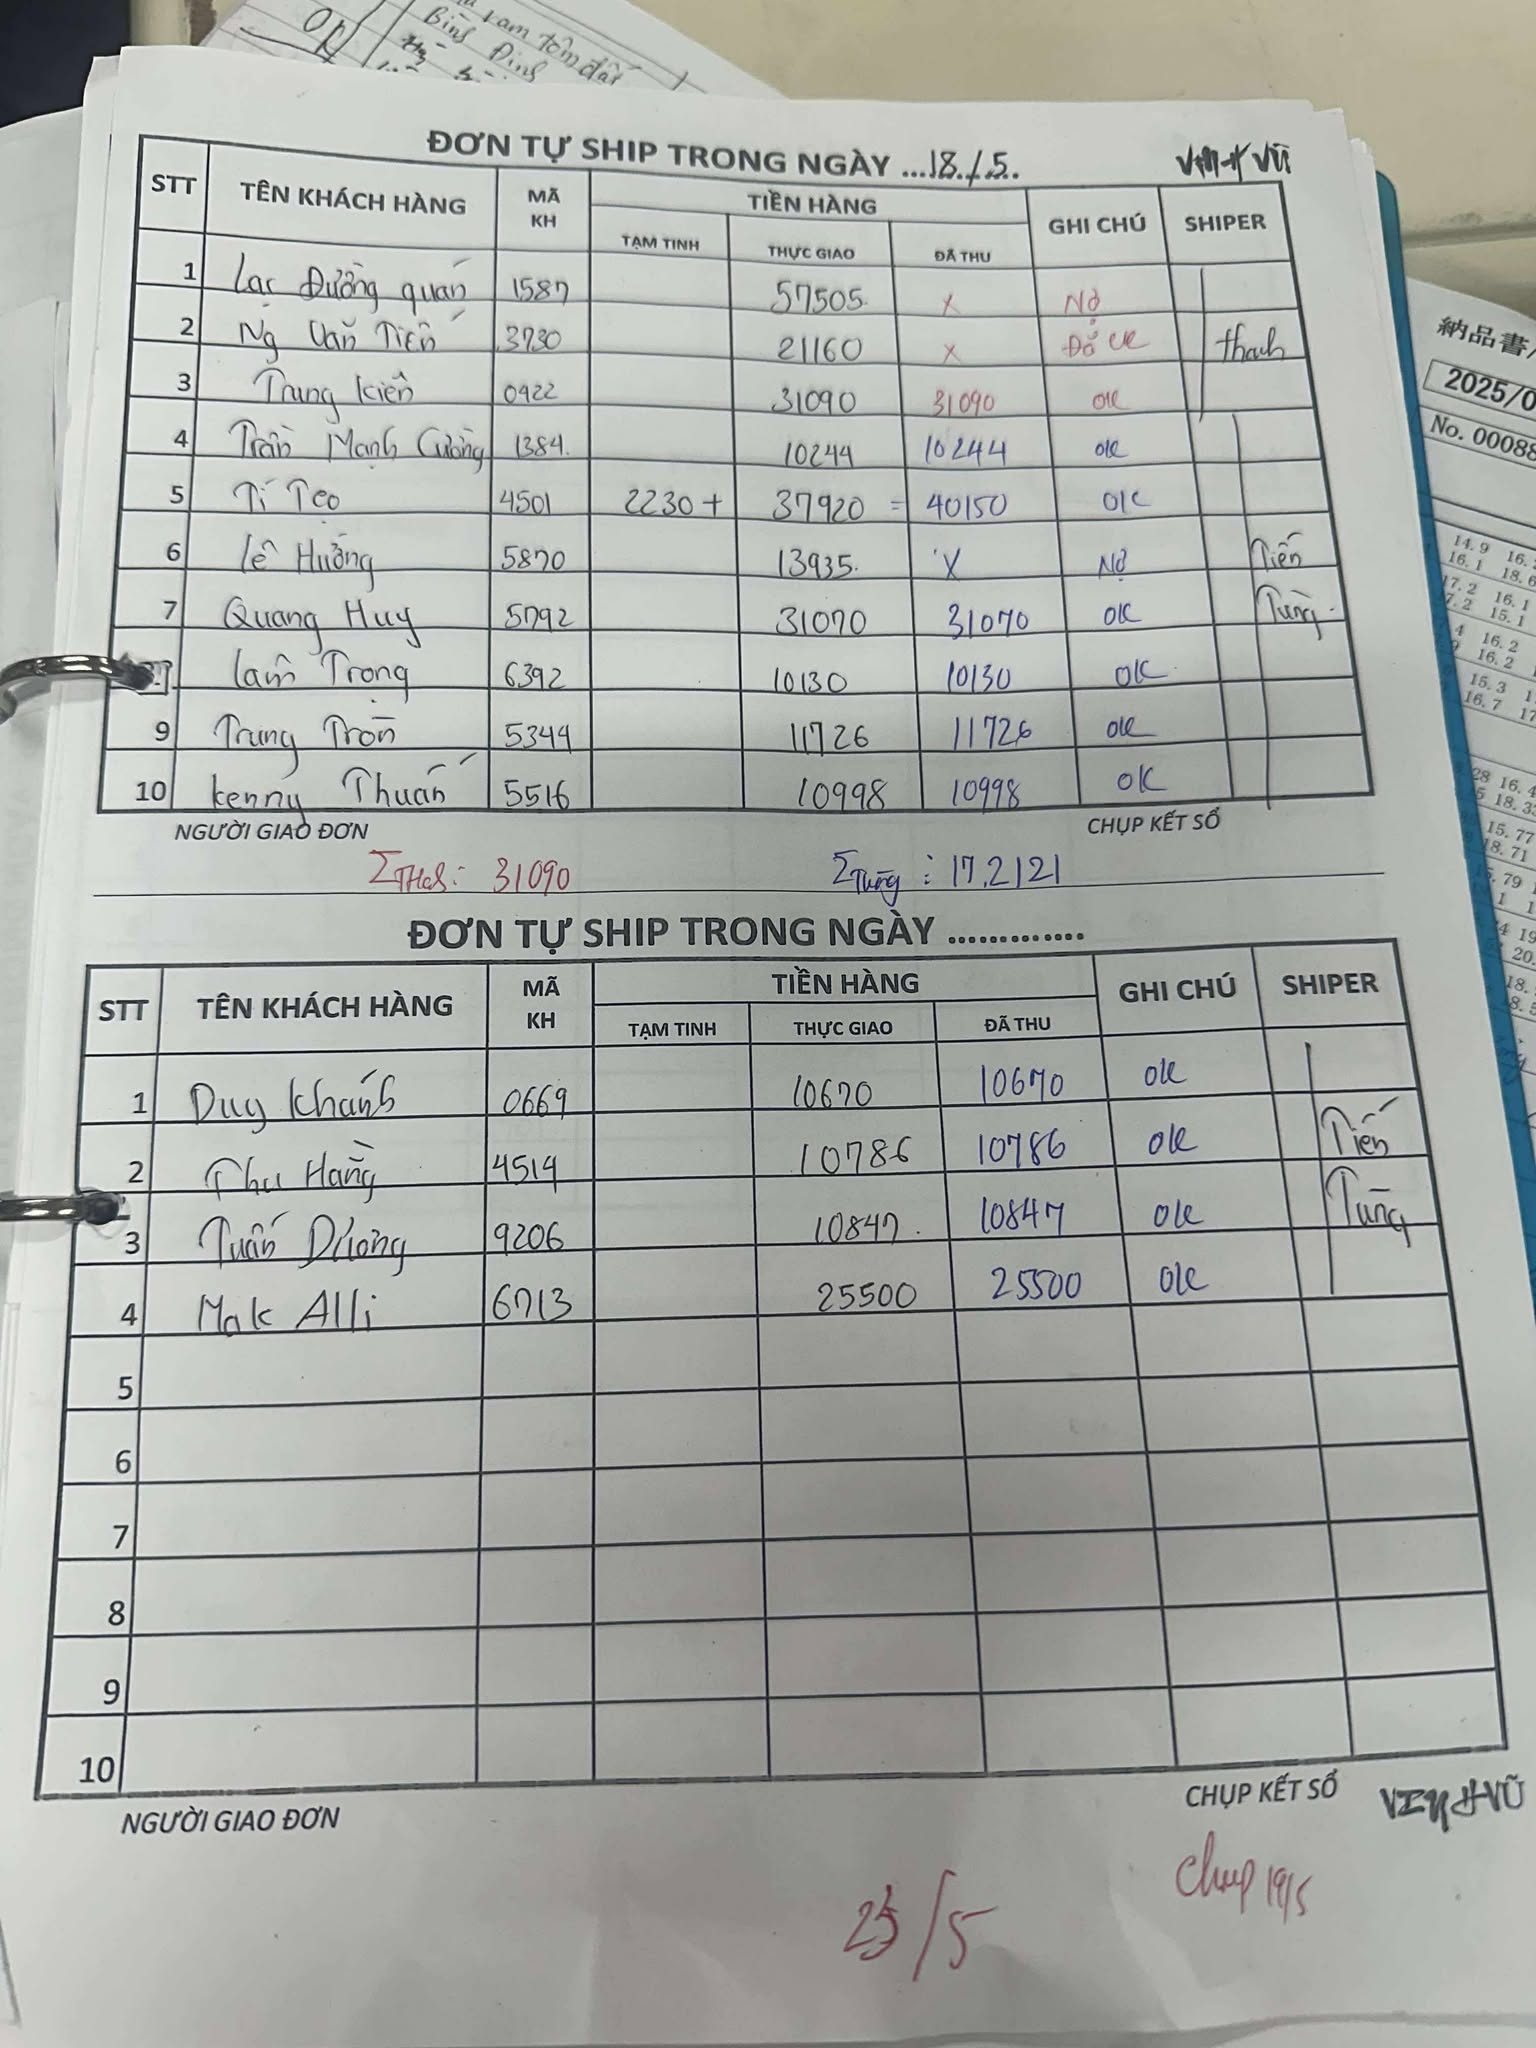 Bình Định
tôm đất
OK
ĐƠN TỰ SHIP TRONG NGÀY ...18../.5..
VŨ
STT TÊN KHÁCH HÀNG MÃ KH TIỀN HÀNG GHI CHÚ SHIPER
TẠM TINH THỰC GIAO ĐÃ THU
1 Lạc Đường quán 1587 57505. x Nợ
2 Ng Văn Tiến 3730 21160 x Đổ CK thanh
3 Trung kiên 0922 31090 31090 OK
4 Trần Mạnh Cường 1384. 10244 10244 OK
5 Tí Teo 4501 2230 + 37920 = 40150 OK
6 Lê Hường 5870 13935. X Nợ Tiến
7 Quang Huy 5792 31070 31070 OK Tùng
Lâm Trọng 6392 10130 10130 OK
9 Trung Tròn 5344 11726 11726 OK
10 kenny Thuấn 5516 10998 10998 OK
NGƯỜI GIAO ĐƠN CHỤP KẾT SỔ
31090 Σ Tùng : 17.2121
ĐƠN TỰ SHIP TRONG NGÀY .............
STT TÊN KHÁCH HÀNG MÃ KH TIỀN HÀNG GHI CHÚ SHIPER
TẠM TINH THỰC GIAO ĐÃ THU
1 Duy Khánh 0669 10670 10670 OK
2 Thu Hằng 4514 10786 10786 OK Tiến
3 Tuấn Dương 9206 10847. 10847 OK Tùng
4 Mak Alli 6713 25500 25500 OK
5
6
7
8
9
10
NGƯỜI GIAO ĐƠN CHỤP KẾT SỔ
VŨ
Chụp 19/5
25/5
納品書
2025/0
No. 00088